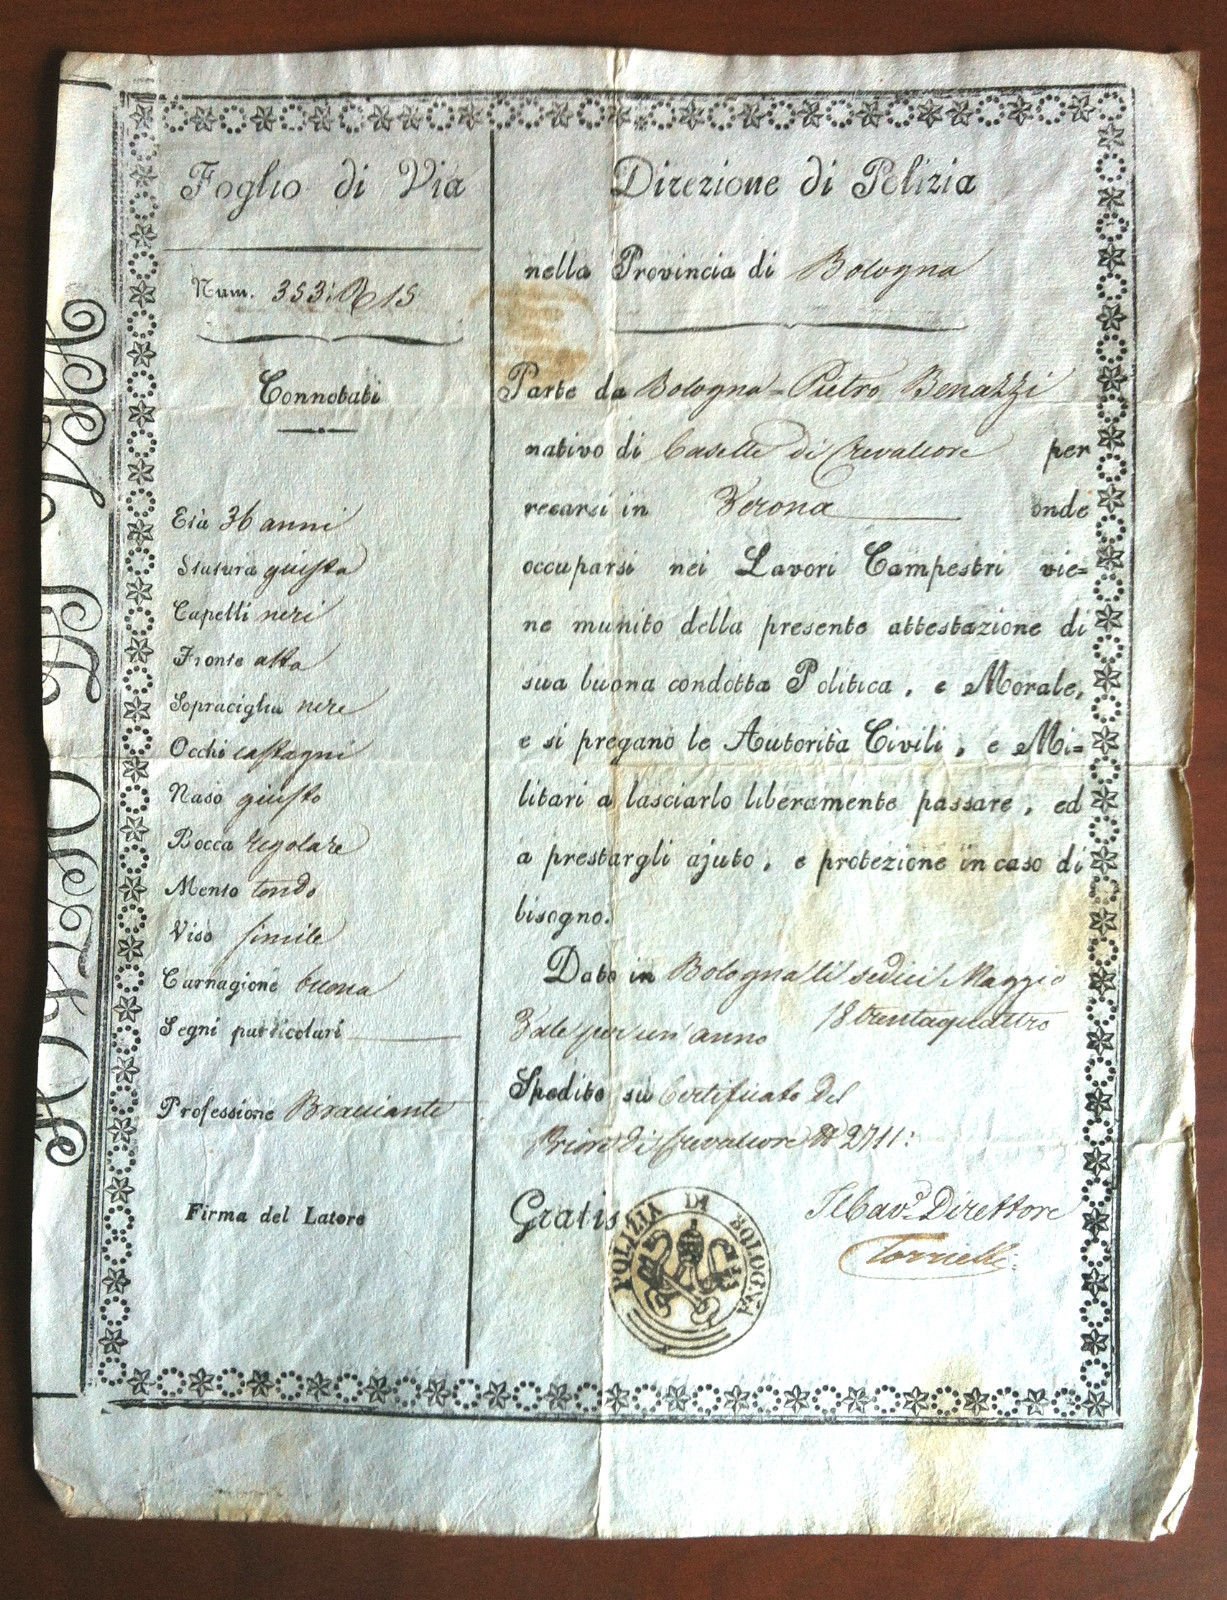 Foglio di Via
Num. 353: R 15
Connotati
Età 36 anni
Statura giusta
Capelli neri
Fronte alta
Sopraciglia nere
Occhi castagni
Naso giusto
Bocca regolare
Mento tondo
Viso simile
Carnagione buona
Segni particolari
Professione Bracciante
Firma del Latore
Direzione di Polizia
nella Provincia di Bologna
Parte da Bologna - Pietro Benazzi
nativo di Caselle di Crevalcore per
recarsi in Verona onde
occuparsi nei Lavori Campestri vie=
ne munito della presente attestazione di
sua buona condotta Politica, e Morale,
e si pregano le Autorità Civili, e Mi=
litari a lasciarlo liberamente passare, ed
a prestargli ajuto, e protezione in caso di
bisogno.
Dato in Bologna li sedici Maggio
18trentaquattro
Vale per un anno
Spedito su Certificato del
Priore di Crevalcore N 2711:
Gratis
POLIZIA DI BOLOGNA
Il Cav.e Direttore